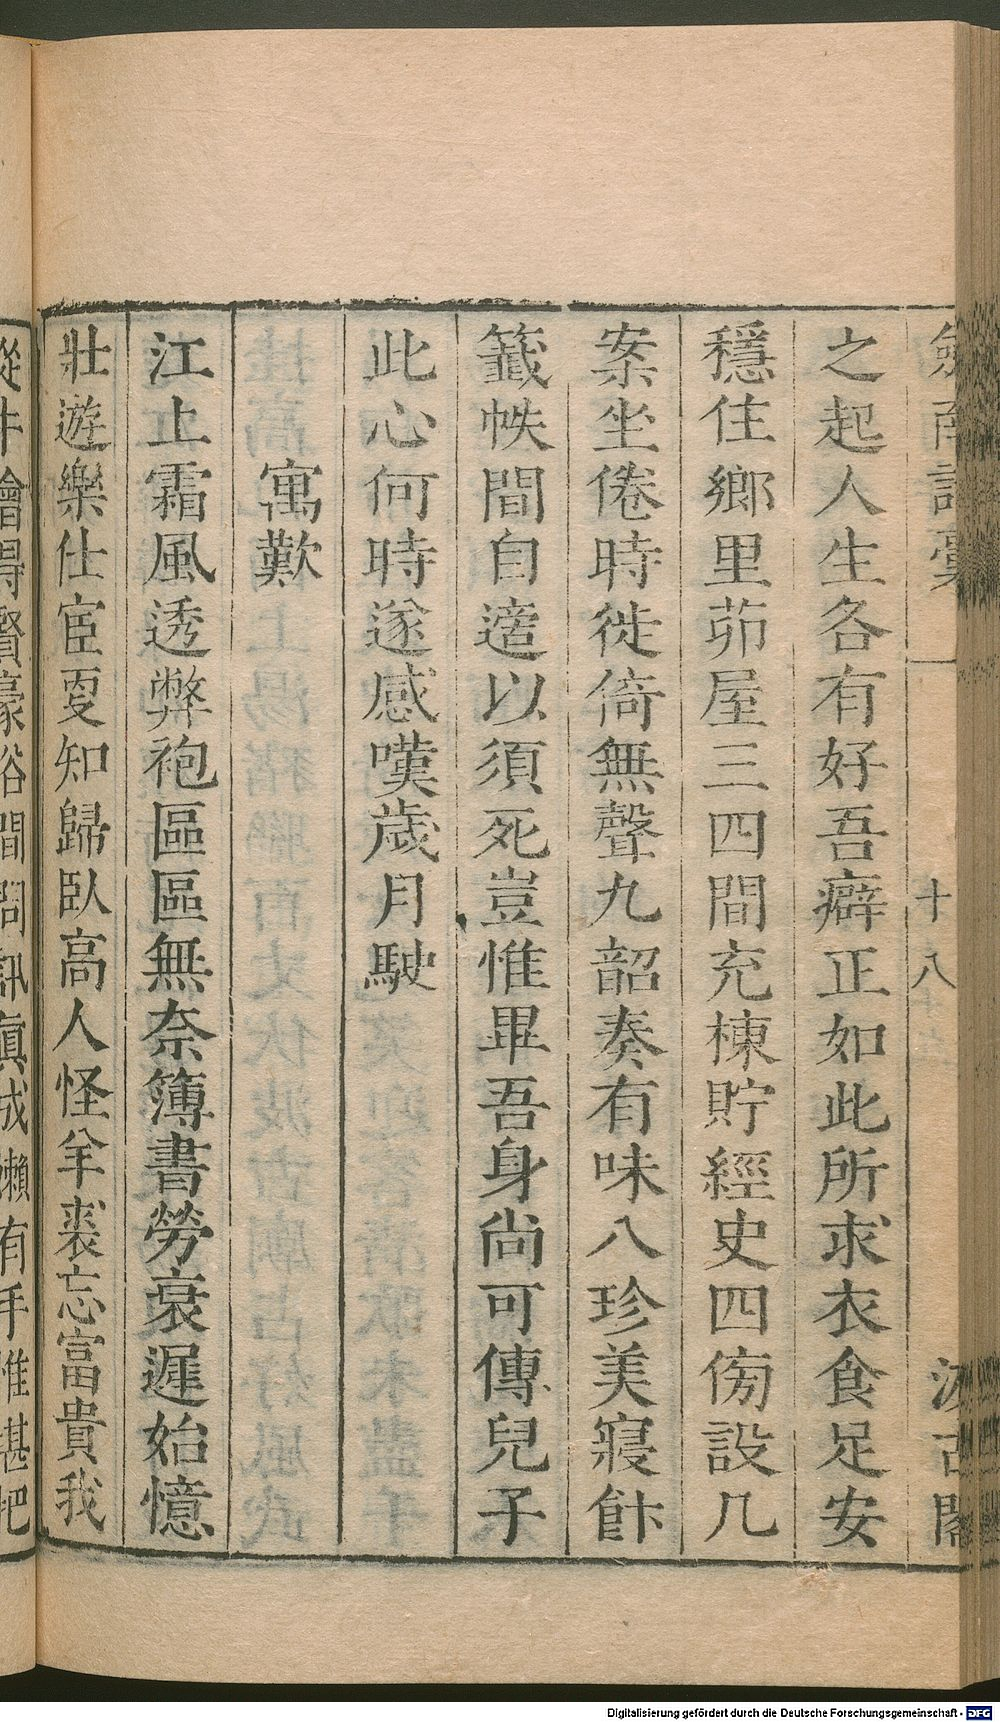 劒南詩稾 一 十八 汲古閣
之起人生各有好吾癖正如此所求衣食足安
穩住鄉里茆屋三四間充棟貯經史四傍設几
案坐倦時徙倚無聲九韶奏有味八珍美寢飰
籤帙間自適以須死豈惟畢吾身尚可傳兒子
此心何時遂感嘆歲月駛
寓歎
江上霜風透弊袍區區無奈簿書勞衰遲始憶
壯遊樂仕宦叓知歸臥高人怪羊裘忘富貴我
從牛 得賢豪俗間問訊真成懶有手惟堪把
Digitalisierung gefördert durch die Deutsche Forschungsgemeinschaft - DFG